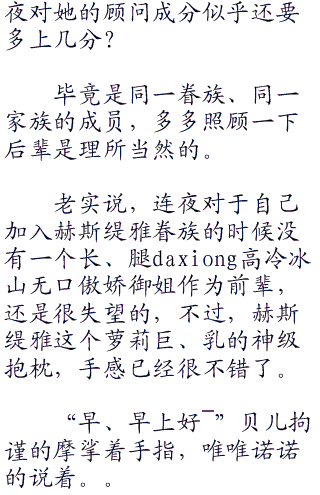 夜对她的顾问成分似乎还要
多上几分？
毕竟是同一眷族、同一
家族的成员，多多照顾一下
后辈是理所当然的。
老实说，连夜对于自己
加入赫斯缇雅眷族的时候没
有一个长、腿daxiong高冷冰
山无口傲娇御姐作为前辈，
还是很失望的，不过，赫斯
缇雅这个萝莉巨、乳的神级
抱枕，手感已经很不错了。
“早、早上好¯”贝儿拘
谨的摩挲着手指，唯唯诺诺
的说着。。